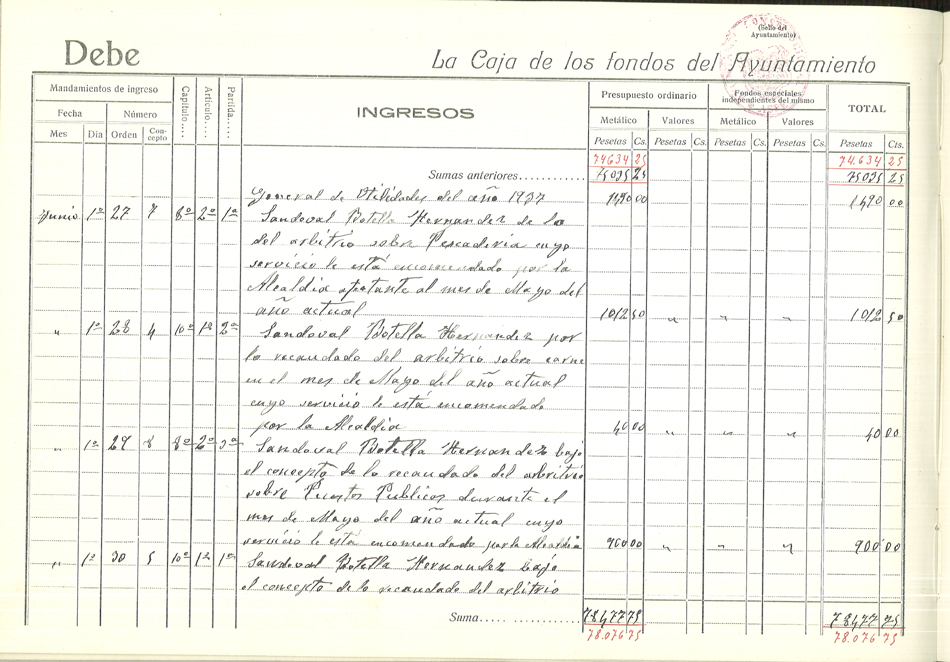 (Sello del
Ayuntamiento)
Debe
La Caja de los fondos del Ayuntamiento
Mandamientos de ingreso
Fecha Número
Mes Día Orden Concepto
Capítulo.... Artículo.... Partida....
INGRESOS
Presupuesto ordinario
Fondos especiales
independientes del mismo
TOTAL
Metálico Valores Metálico Valores
Pesetas Cs. Pesetas Cs. Pesetas Cs. Pesetas Cs. Pesetas Cts.
74634 25 74.634 25
Sumas anteriores............ 75035 25 75035 25
General de Utilidades del año 1937 1490 00 1490 00
Junio 1º 27 7 8º 2º 1ª Sandoval Botella Hernandez de lo
del arbitrio sobre Pescaderia cuyo
servicio le está encomendado por la
Alcaldia al mes de Mayo del
año actual 1012 50 " " " 1012 50
" 1º 28 4 10º 1º 2ª Sandoval Botella Hernandez por
lo recaudado del arbitrio sobre carne
en el mes de Mayo del año actual
cuyo servicio le está encomendado
por la Alcaldia 40 00 " " " 40 00
" 1º 29 8 8º 2º 3ª Sandoval Botella Hernandez bajo
el concepto de lo recaudado del arbitrio
sobre Puestos Publicos durante el
mes de Mayo del año actual cuyo
servicio le está encomendado por la Alcaldia 900 00 " " " 900 00
" 1º 30 5 10º 1º 1ª Sandoval Botella Hernandez bajo
el concepto de lo recaudado del arbitrio
Suma..... ............ 78477 75 78477 75
78.076 75 78.076 75